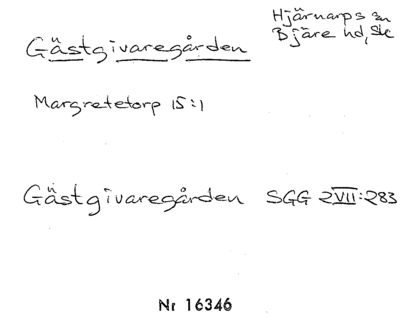 Gästgivaregården
Hjärnarps sn
Bjäre hd, Sk
Margretetorp 15:1
Gästgivaregården SGG 2VII:283
Nr 16346